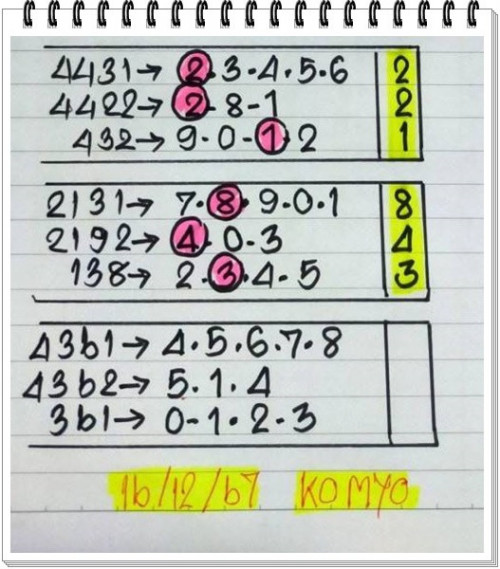 4431→ 2·3·4·5·6 2
4422→ 2·8-1 2
432→ 9·0-1·2 1
2131→ 7·8·9·0·1 8
2192→ 4·0·3 4
138→ 2·3·4·5 3
43b1→ 4·5·6·7·8
43b2→ 5·1·4
3b1→ 0-1·2·3
1b/12/b7 KO MYO